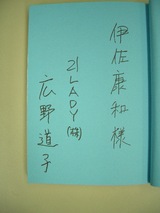 伊佐康和様
21LADY㈱
広野道子